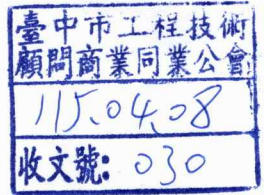 臺中市工程技術
顧問商業同業公會
115.04.08
收文號: 030